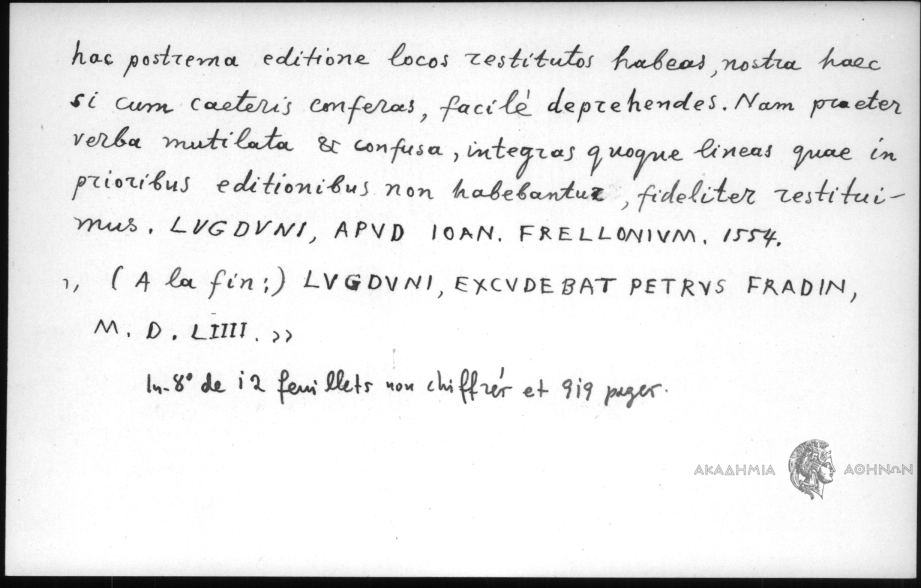 hac postrema editione locos restitutos habeas, nostra haec
si cum caeteris conferas, facilé deprehendes. Nam praeter
verba mutilata & confusa, integras quoque lineas quae in
prioribus editionibus non habebantur, fideliter restitui-
mus. LVGDVNI, APVD IOAN. FRELLONIVM. 1554.
», (A la fin:) LVGDVNI, EXCVDEBAT PETRVS FRADIN,
M. D. LIIII. »
In-8° de i2 feuillets non chiffrés et 9i9 pages.
ΑΚΑΔΗΜΙΑ ΑΘΗΝΩΝ